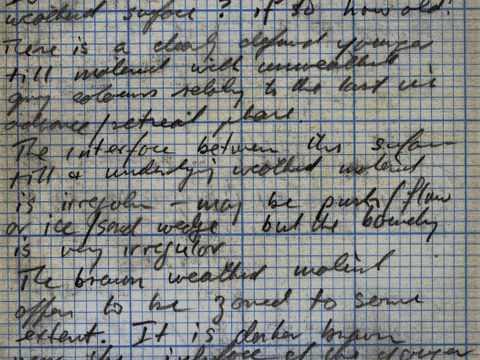 weathered surface? if so how old?
There is a clearly defined younger
till material with unweathered
grey colours relating to the last ice
advance/retreat phase
The interface between this surface
till & underlying weathered material
is irregular - may be push/flow
or ice/sand wedge but the boundary
is very irregular
The brown weathered material
appears to be zoned to some
extent. It is darker brown
near the interface of the younger